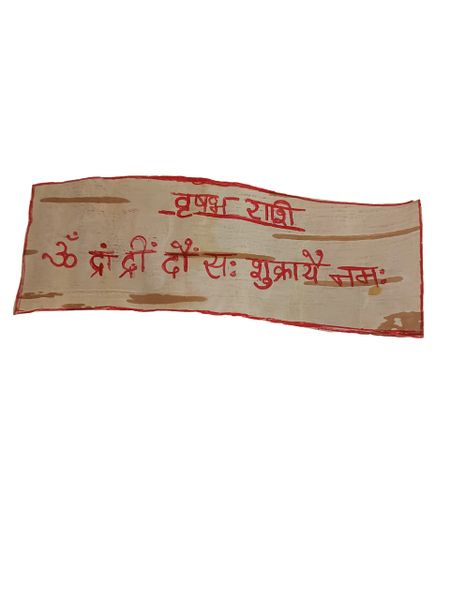 वृषभ राशी
ॐ द्रां द्रीं दौं सः शुक्रायै नमः